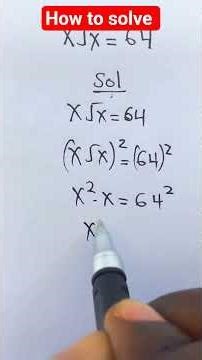 How to solve
x√x = 64
Sol
x√x = 64
(x√x)² = (64)²
x² · x = 64²
x